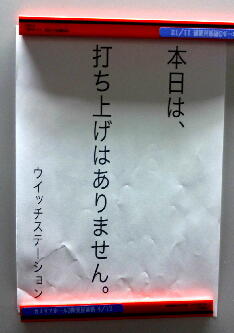 本日は、
打ち上げはありません。
ウイッチステーション